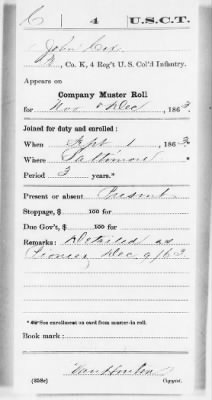 C | 4 | U.S.C.T.
John Cox
Co. K, 4 Reg't U. S. Col'd Infantry.
Appears on
Company Muster Roll
for Nov & Dec, 1863.
Joined for duty and enrolled:
When Sept 1, 1863.
Where Baltimore
Period 3 years.*
Present or absent Present
Stoppage, $ 100 for
Due Gov't, $ 100 for
Remarks: Detailed as
Pioneer Dec 9/63
* See enrollment on card from muster-in roll.
Book mark:
(858c) Copyist.